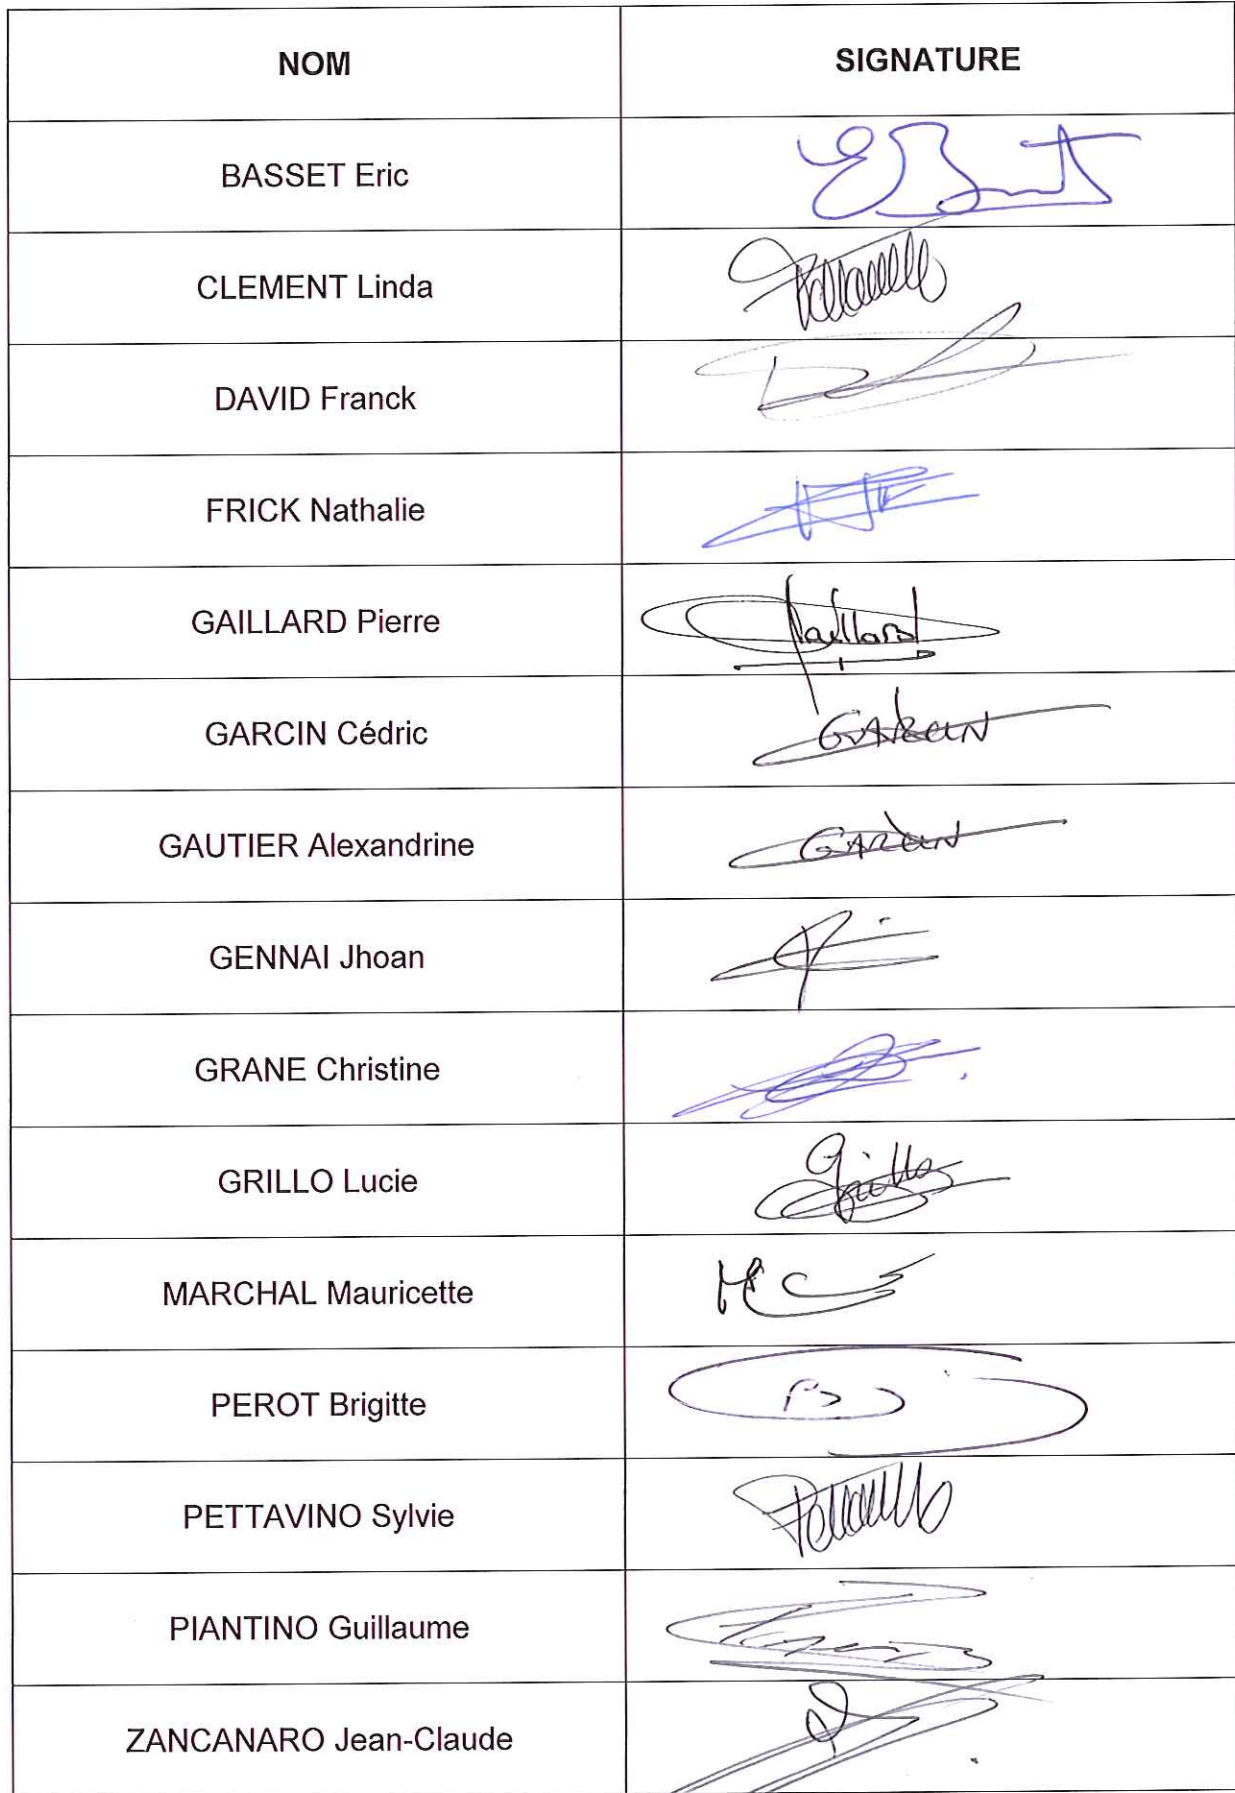 NOM SIGNATURE
BASSET Eric
CLEMENT Linda
DAVID Franck
FRICK Nathalie
GAILLARD Pierre Gaillard
GARCIN Cédric GARCIN
GAUTIER Alexandrine GARCIN
GENNAI Jhoan
GRANE Christine
GRILLO Lucie Grillo
MARCHAL Mauricette
PEROT Brigitte
PETTAVINO Sylvie
PIANTINO Guillaume
ZANCANARO Jean-Claude